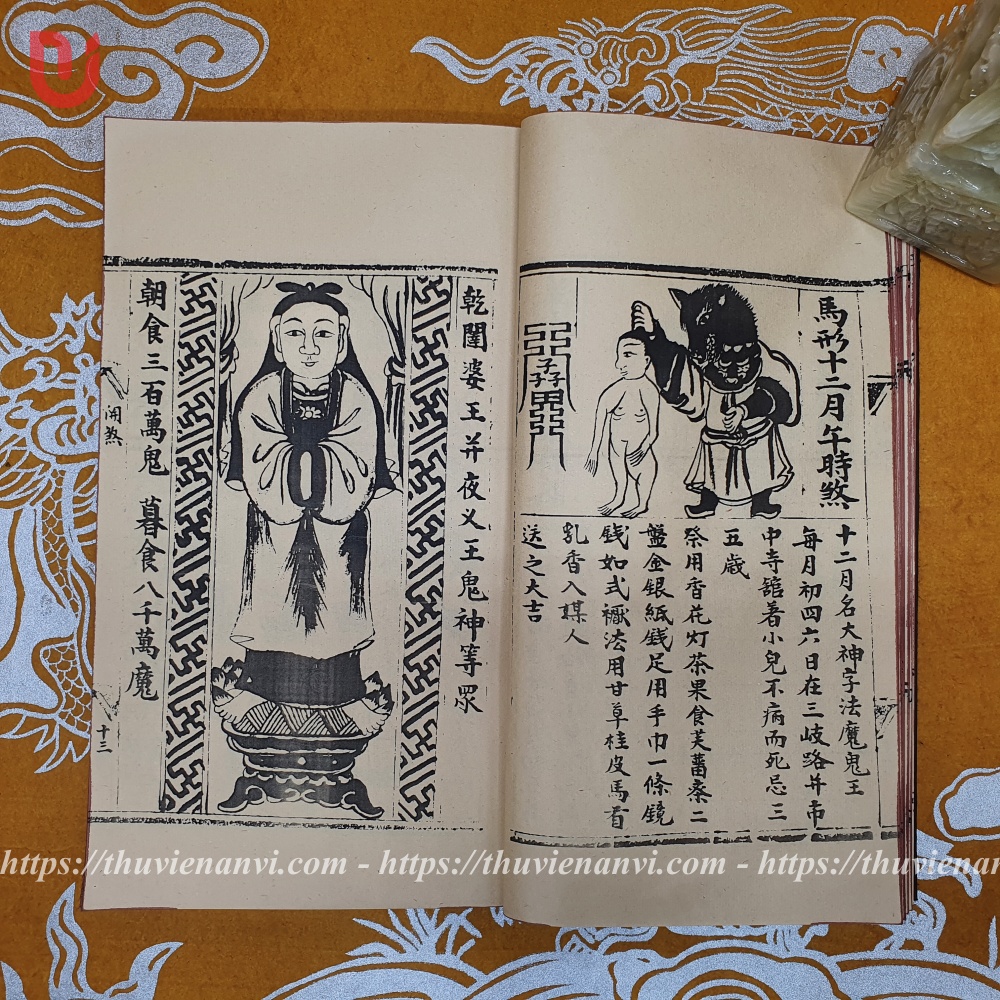 馬形十二月午時煞
十二月名大神字法魔鬼王
每月初四六日在三岐路并市
中寺舘着小兒不病而死忌三
五歲
祭用香花灯茶果食芙蔷桊二
盤金銀紙銭足用手巾一條鏡
銭如式襰法用甘草桂皮馬首
乳香入謀人
送之大吉
乾闥婆王并夜义王鬼神等眾
朝食三百萬鬼 暮食八千萬魔
開煞
十三
https://thuvienanvi.com - https://thuvienanvi.com - https://thuvienanvi